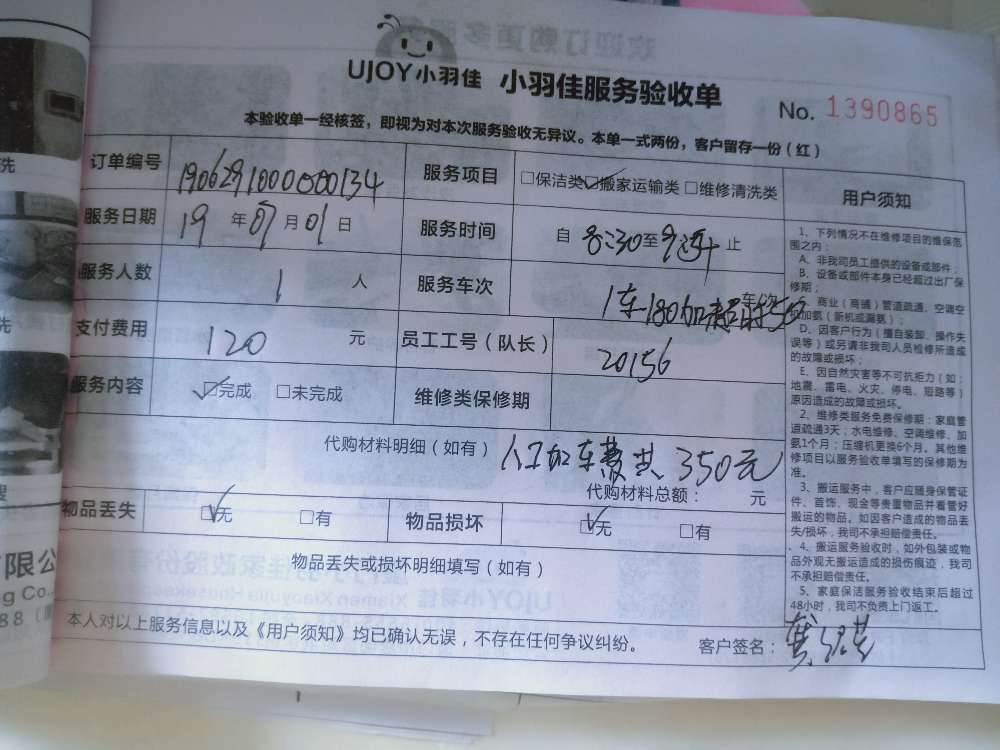 UJOY小羽佳 小羽佳服务验收单
No. 1390865
本验收单一经核签，即视为对本次服务验收无异议。本单一式两份，客户留存一份（红）
订单编号 1906291000000134 服务项目 □保洁类 ☑搬家运输类 □维修清洗类
服务日期 19 年 07 月 01 日 服务时间 自 8:30 至 止
服务人数 1 人 服务车次 1车180加超时50 车/次
支付费用 120 元 员工工号（队长） 20156
服务内容 ☑完成 □未完成 维修类保修期
代购材料明细（如有） 人工加车费共350元
代购材料总额： 元
物品丢失 ☑无 □有 物品损坏 ☑无 □有
物品丢失或损坏明细填写（如有）
本人对以上服务信息以及《用户须知》均已确认无误，不存在任何争议纠纷。 客户签名：
用户须知
1、下列情况不在维修项目的维保范
围之内：
A、非我司员工提供的设备或部件；
B、设备或部件本身已经超过出厂保
修期；
商业（商铺）管道疏通、空调空
加氨（新机或漏氨）；
D、因客户行为（擅自装卸、操作失
误等）或另请非我司人员检修所造成
的故障或损坏；
E、因自然灾害等不可抗拒力（如：
地震、雷电、火灾、停电、短路等）
原因造成的故障或损坏。
2、维修类服务免费保修期：家庭管
道疏通3天；水电维修、空调维修、加
氨1个月；压缩机更换6个月。其他维
修项目以服务验收单填写的保修期为
准。
3、搬运服务中，客户应随身保管证
件、首饰、现金等贵重物品并看管好
搬运的物品。如因客户造成的物品丢
失/损坏，我司不承担赔偿责任。
4、搬运服务验收时，如外包装或物
品外观无搬运造成的损伤痕迹，我司
不承担赔偿责任。
5、家庭保洁服务验收结束后超过
48小时，我司不负责上门返工。
洗
洗
限公
g Co.,
88